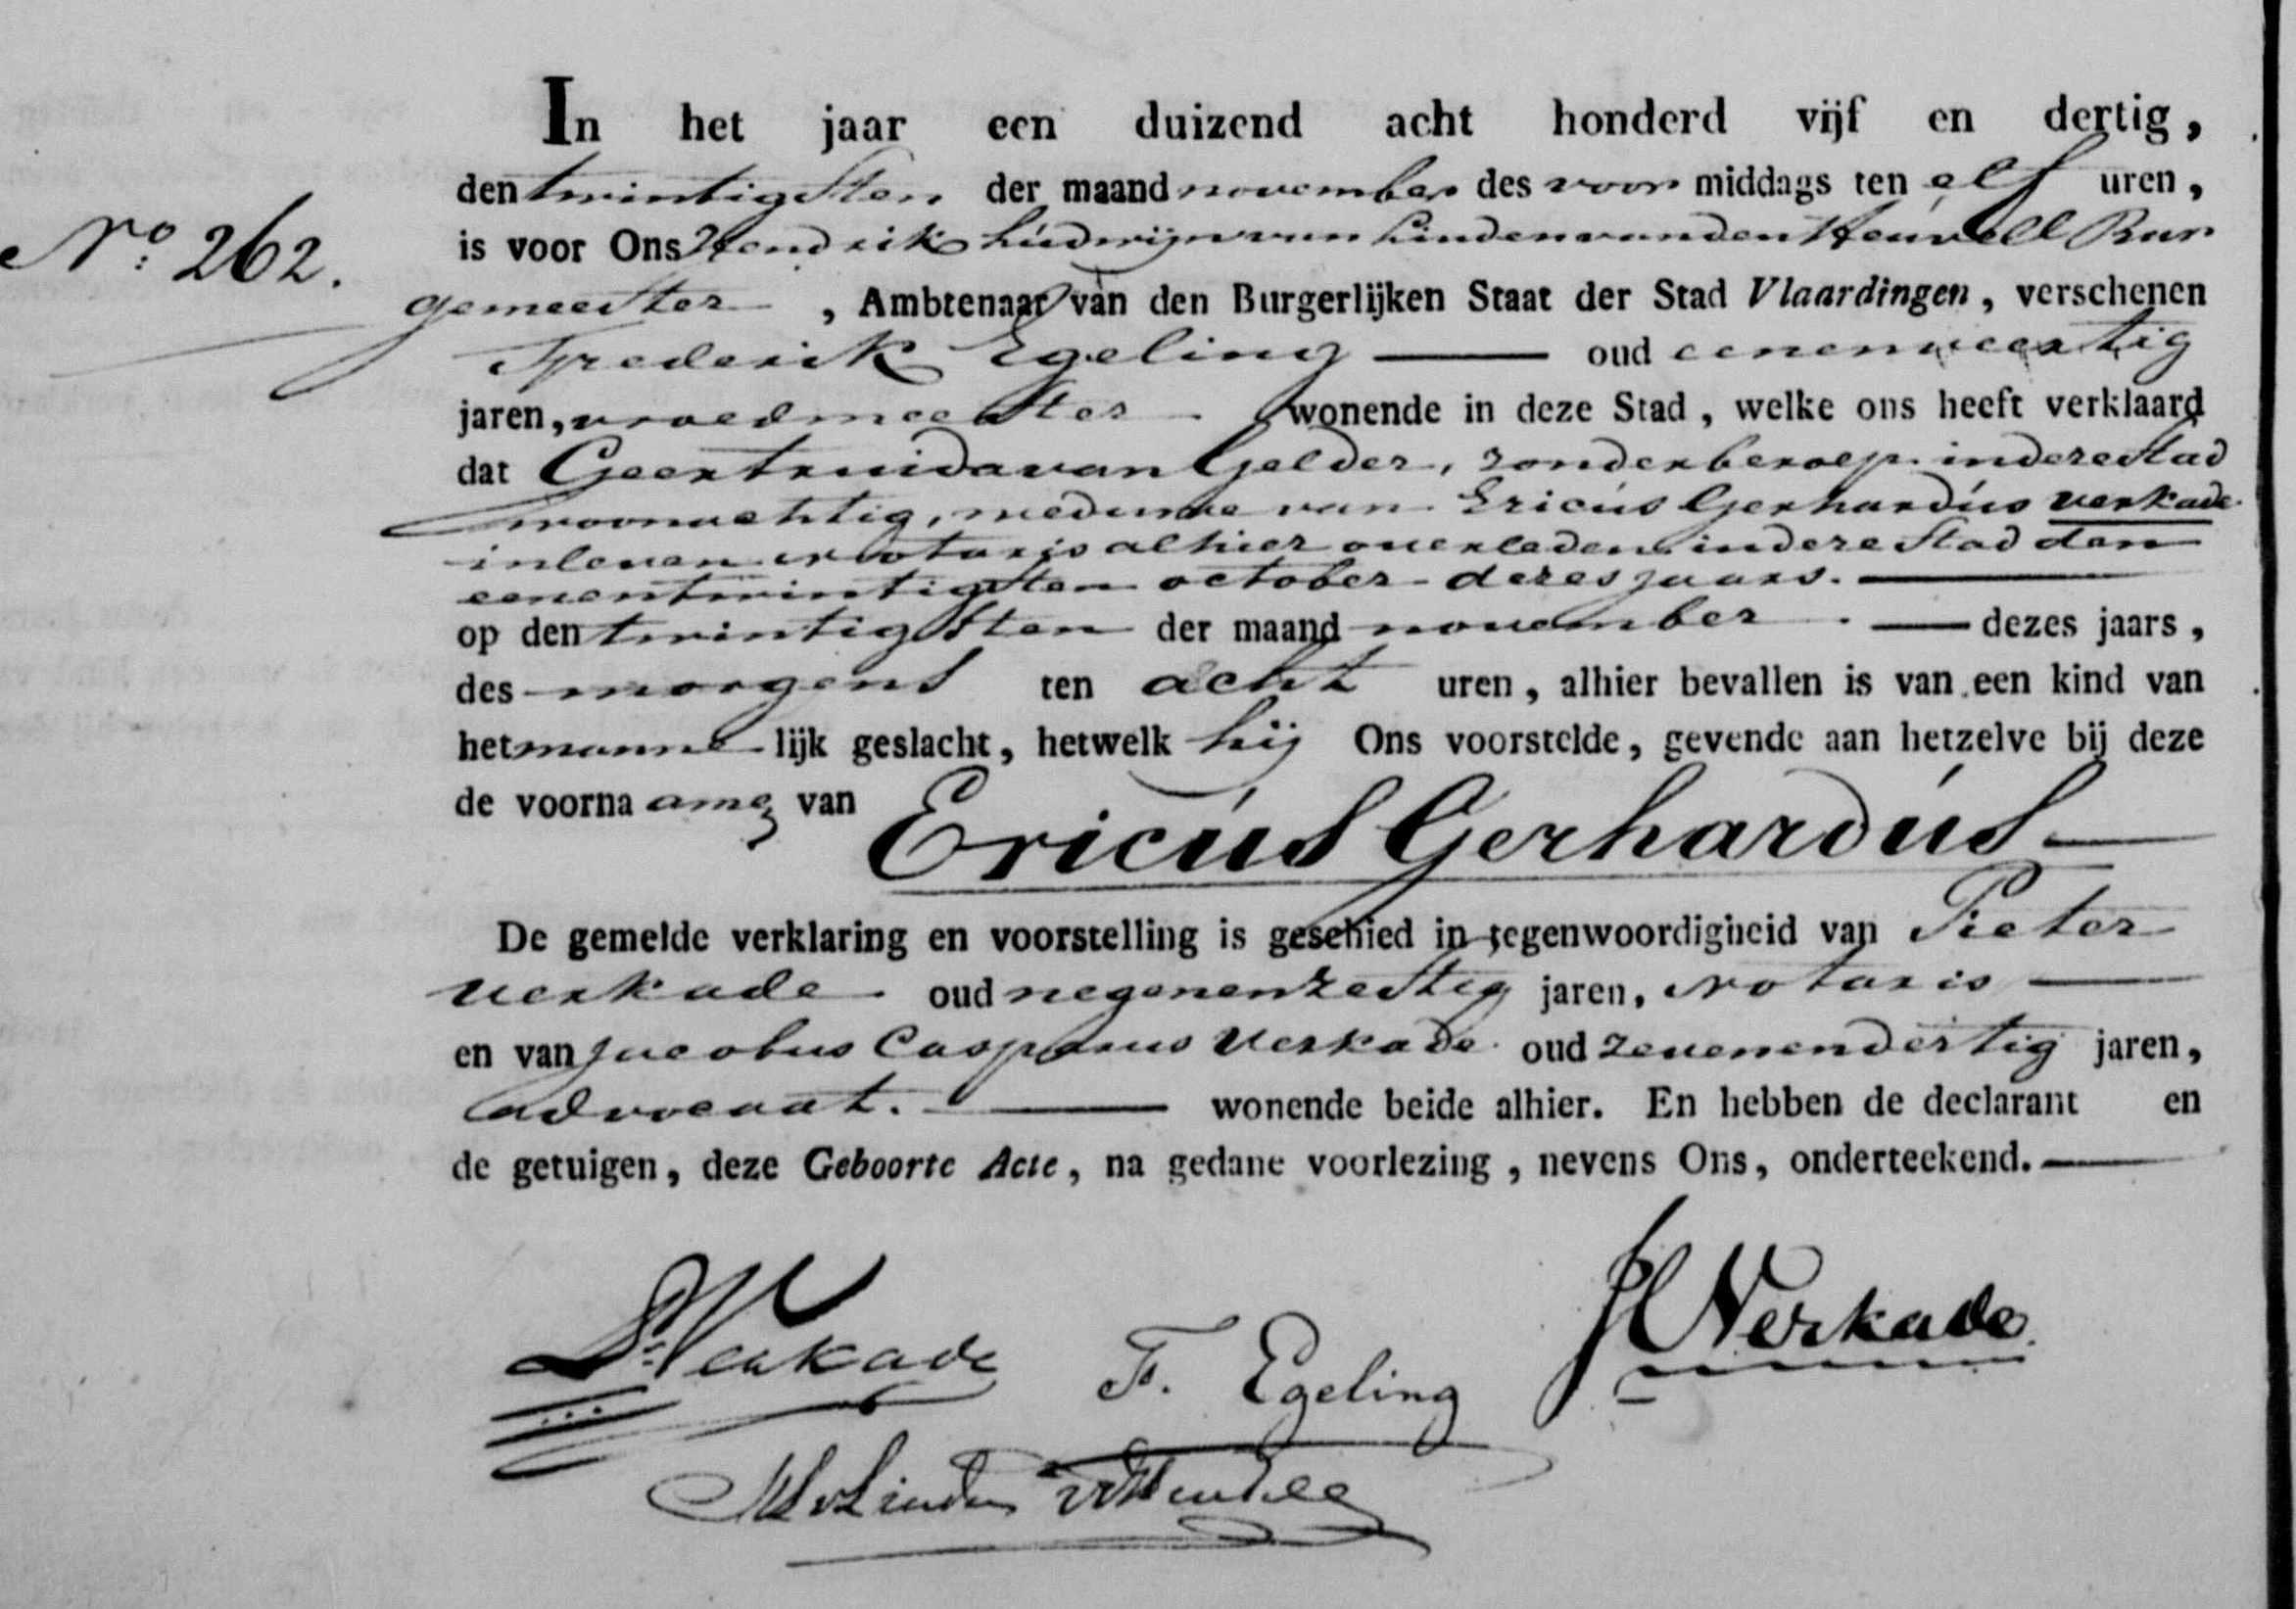 In het jaar een duizend acht honderd vijf en dertig,
den twintigsten der maand november des voor middags ten elf uren,
No. 262.
is voor Ons Hendrik Ludwijn van Linden van den Heuvell Bur
gemeester, Ambtenaar van den Burgerlijken Staat der Stad Vlaardingen, verschenen
Frederik Egeling — oud eenenveertig
jaren, vroedmeester wonende in deze Stad, welke ons heeft verklaard
dat Geertruida van Gelder, zonder beroep in deze Stad
woonachtig, weduwe van Ericus Gerhardus Verkade
in leven Notaris alhier overleden in deze Stad den
eenentwintigsten october dezes jaars. —
op den twintigsten der maand november — dezes jaars,
des morgens ten acht uren, alhier bevallen is van een kind van
het manne lijk geslacht, hetwelk hij Ons voorstelde, gevende aan hetzelve bij deze
de voorna ame van Ericus Gerhardus —
De gemelde verklaring en voorstelling is geschied in tegenwoordigheid van Pieter
Verkade oud negenenzestig jaren, Notaris —
en van Jacobus Casparus Verkade oud zevenendertig jaren,
advocaat. — wonende beide alhier. En hebben de declarant en
de getuigen, deze Geboorte Acte, na gedane voorlezing, nevens Ons, onderteekend. —
P. Verkade F. Egeling JC Verkade
HL v Linden vd Heuvell